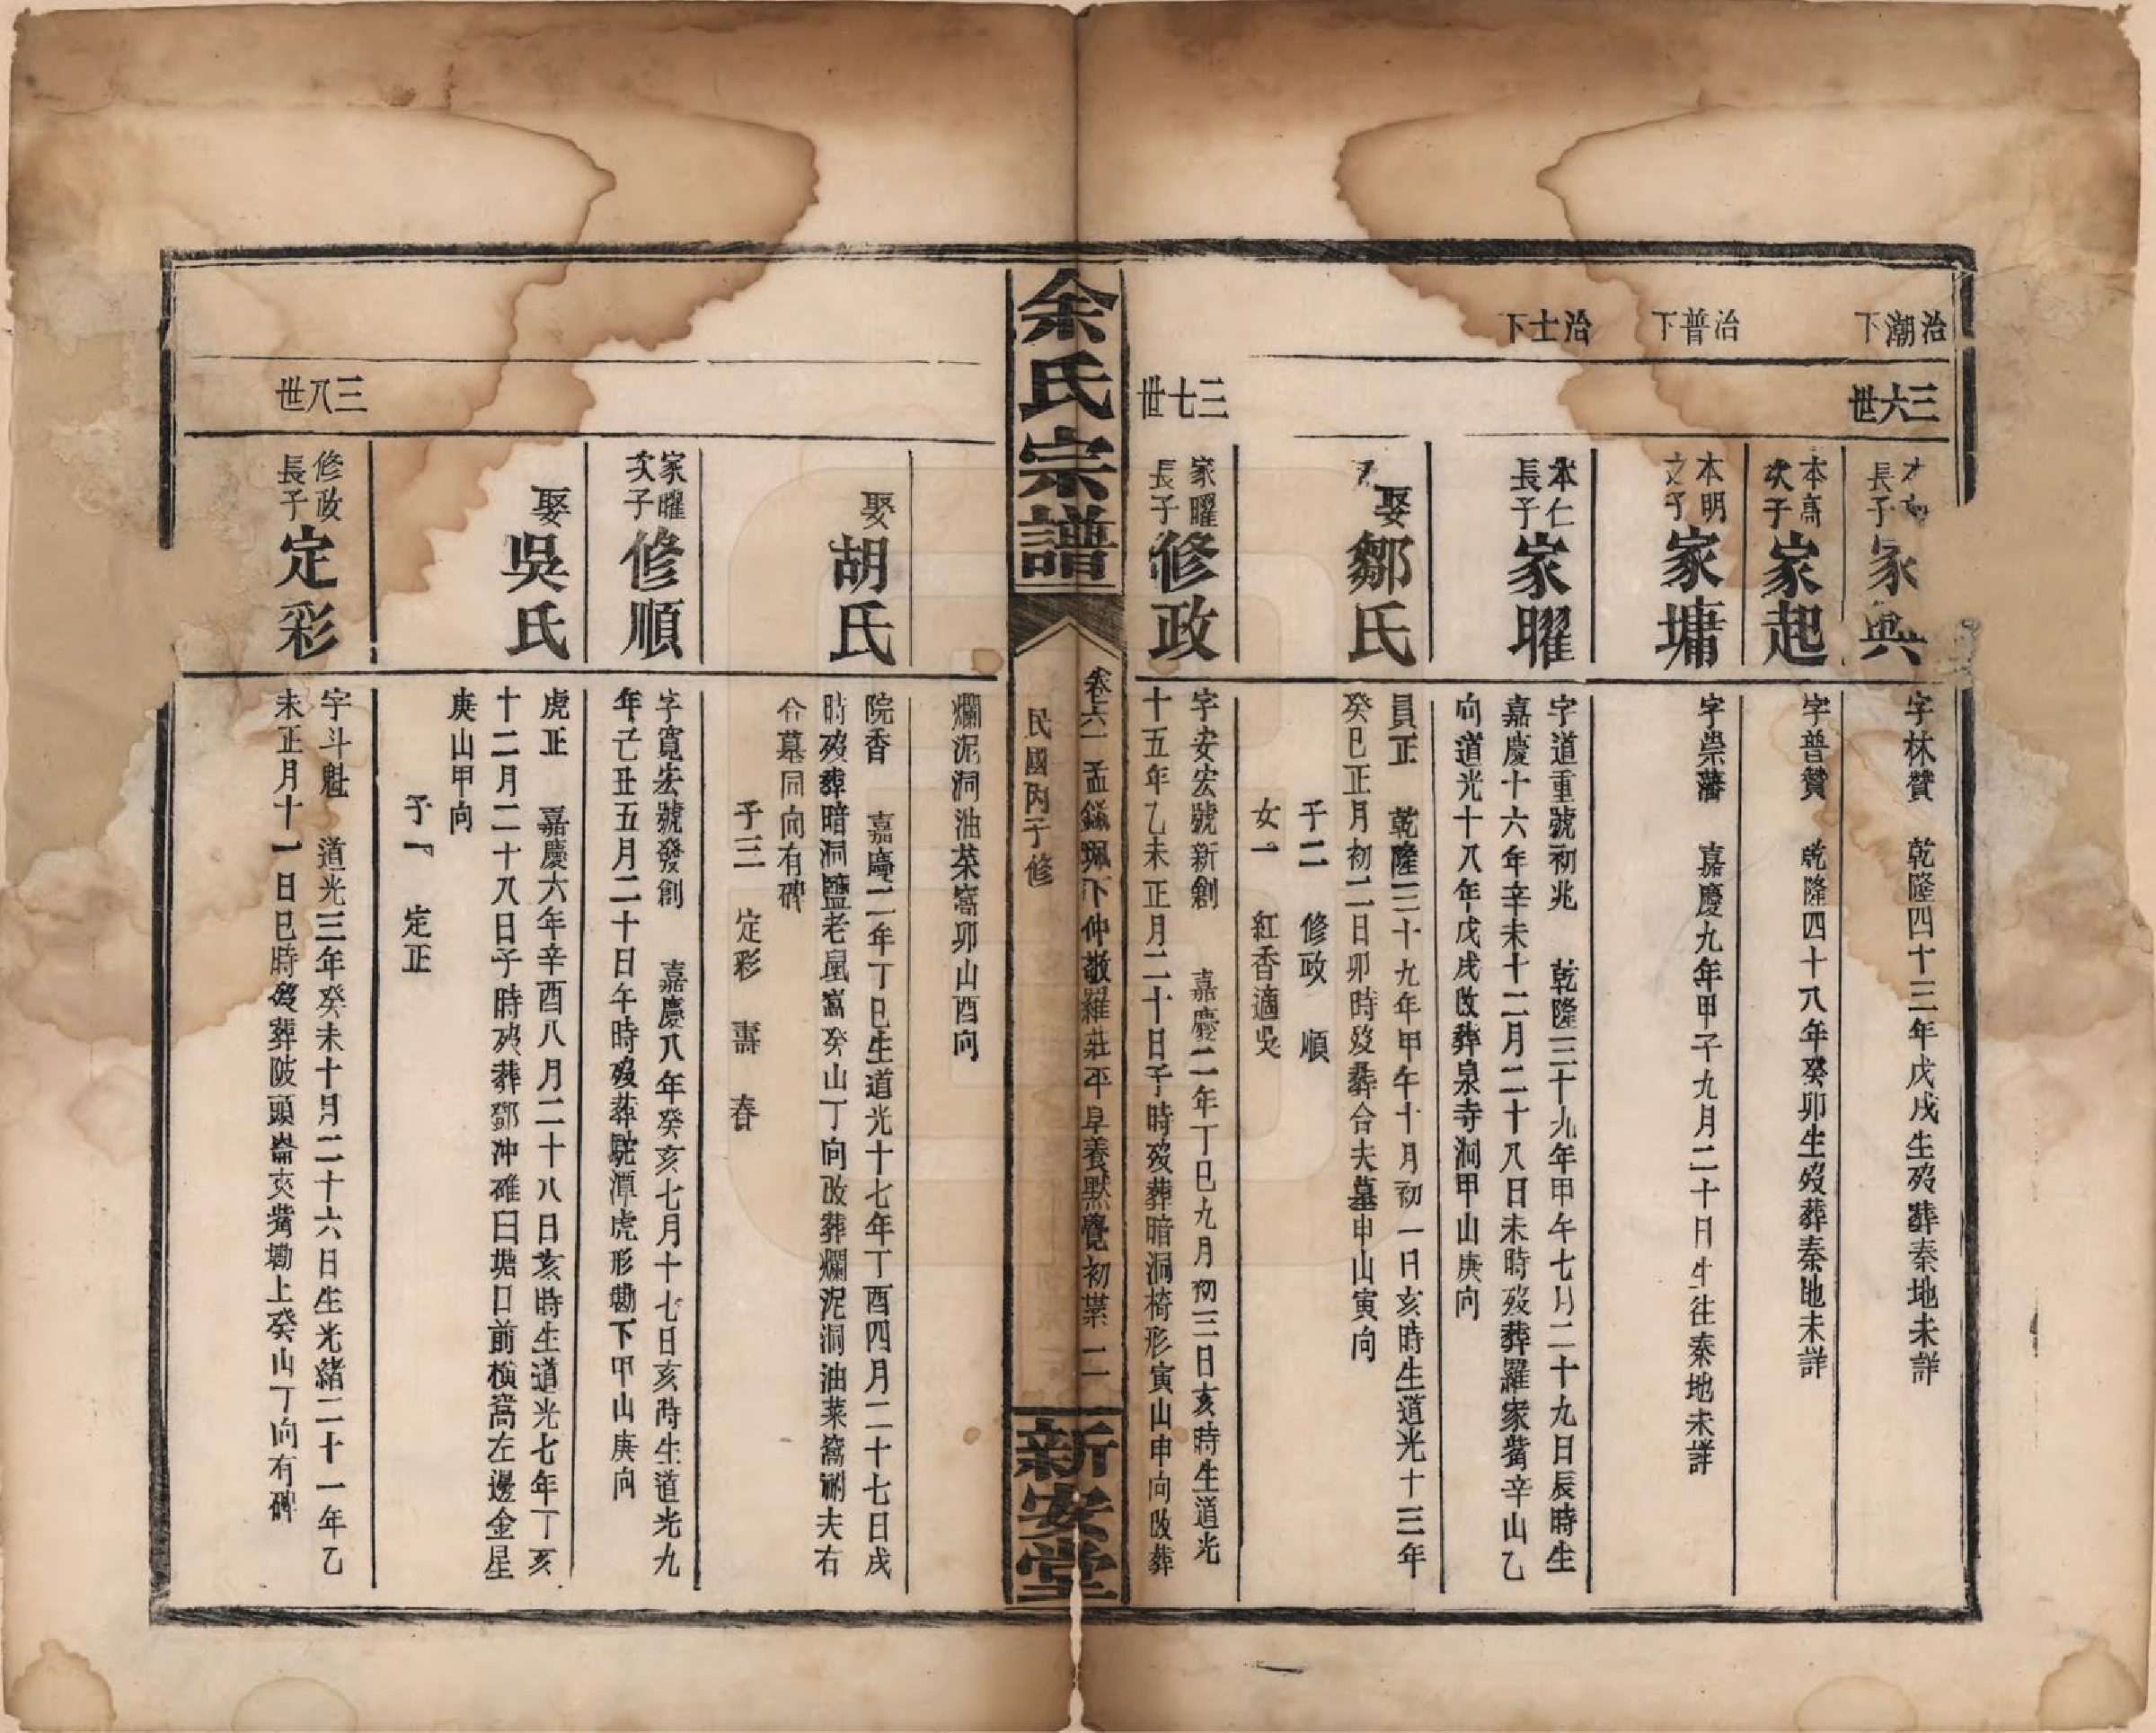 治潮下
三六世
長子
家興
字林贊 乾隆四十三年戊戌生歿葬秦地未詳
本高
次子
家起
字普贊 乾隆四十八年癸卯生歿葬秦地未詳
治普下
本明
次子
家墉
字崇藩 嘉慶九年甲子九月二十日生往秦地未詳
治士下
本仁
長子
家曜
字道重號初兆 乾隆三十九年甲午七月二十九日辰時生
嘉慶十六年辛未十二月二十八日未時歿葬羅家嘴辛山乙
向道光十八年戊戌改葬泉寺洞甲山庚向
娶
鄒氏
員正 乾隆三十九年甲午十月初一日亥時生道光十三年
癸巳正月初二日卯時歿葬合夫墓申山寅向
子二 修政 順
女一 紅香適吳
三七世
家曜
長子
修政
字安宏號新創 嘉慶二年丁巳九月初三日亥時生道光
十五年乙未正月二十日子時歿葬暗洞椅形寅山申向改葬
余氏宗譜
卷六一 孟鎡珮下仲敬羅莊平阜養默覺初業 二
民國丙子修
新安堂
爛泥洞油菜窩卯山酉向
娶
胡氏
院香 嘉慶二年丁巳生道光十七年丁酉四月二十七日戌
時歿葬暗洞鹽老鼠窩癸山丁向改葬爛泥洞油菜窩祔夫右
合墓同向有碑
子三 定彩 壽 春
家曜
次子
修順
字寬宏號發創 嘉慶八年癸亥七月十七日亥時生道光九
年己丑五月二十日午時歿葬駝潭虎形磡下甲山庚向
娶
吳氏
虎正 嘉慶六年辛酉八月二十八日亥時生道光七年丁亥
十二月二十八日子時歿葬鄧沖碓臼塘口前橫窩左邊金星
庚山甲向
子一 定正
三八世
修政
長子
定彩
字斗魁 道光三年癸未十月二十六日生光緒二十一年乙
未正月十一日巳時歿葬陂頭崙夾嘴磡上癸山丁向有碑